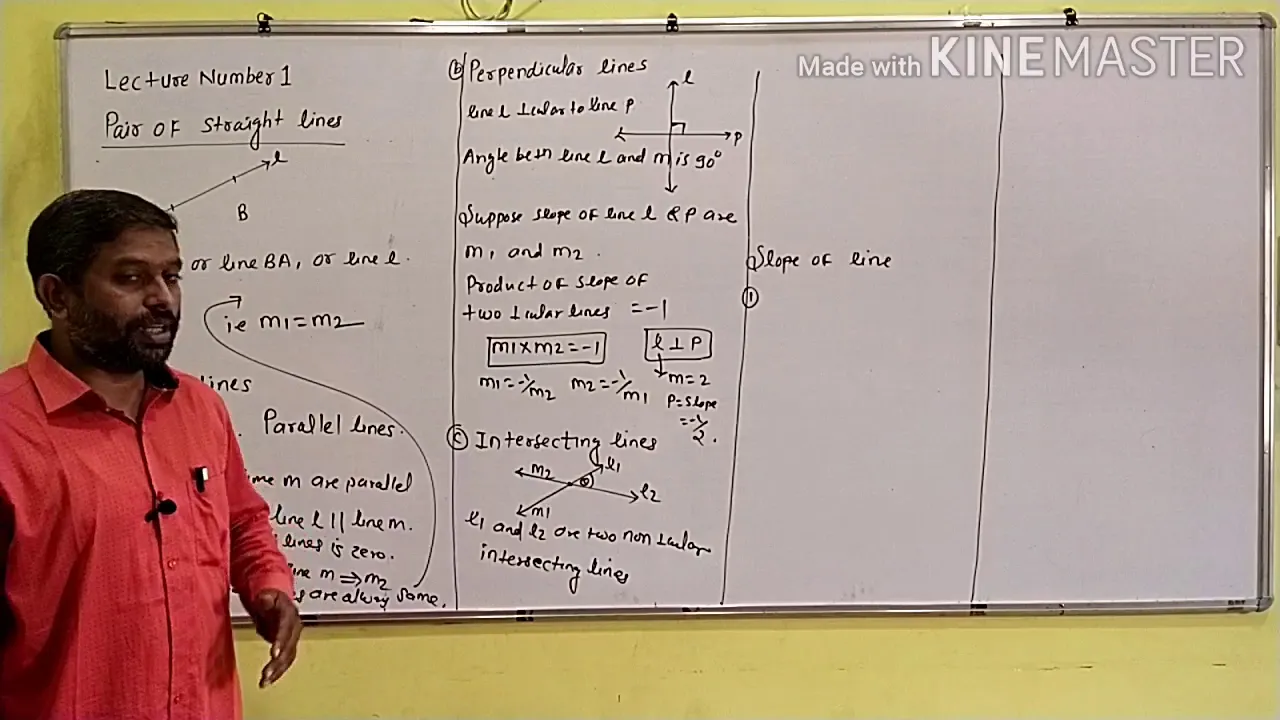 Made with KINEMASTER
Lecture Number 1
Pair of straight lines
l
B
or line BA, or line l.
ie m1=m2
lines
Parallel lines.
m are parallel
line l || line m.
lines is zero.
line m ⇒ m2
are alway same.
(b) Perpendicular lines
l
line l ⊥cular to line P
P
Angle betn line l and m is 90°
Suppose slope of line l & P are
m1 and m2.
Product of slope of
two ⊥cular lines = -1
m1×m2=-1
l ⊥ P
m1=-1/m2
m2=-1/m1
m=2
P=slope
=-1/2.
(c) Intersecting lines
m2
l1
θ
l2
m1
l1 and l2 are two non ⊥cular
intersecting lines
Slope of line
(1)